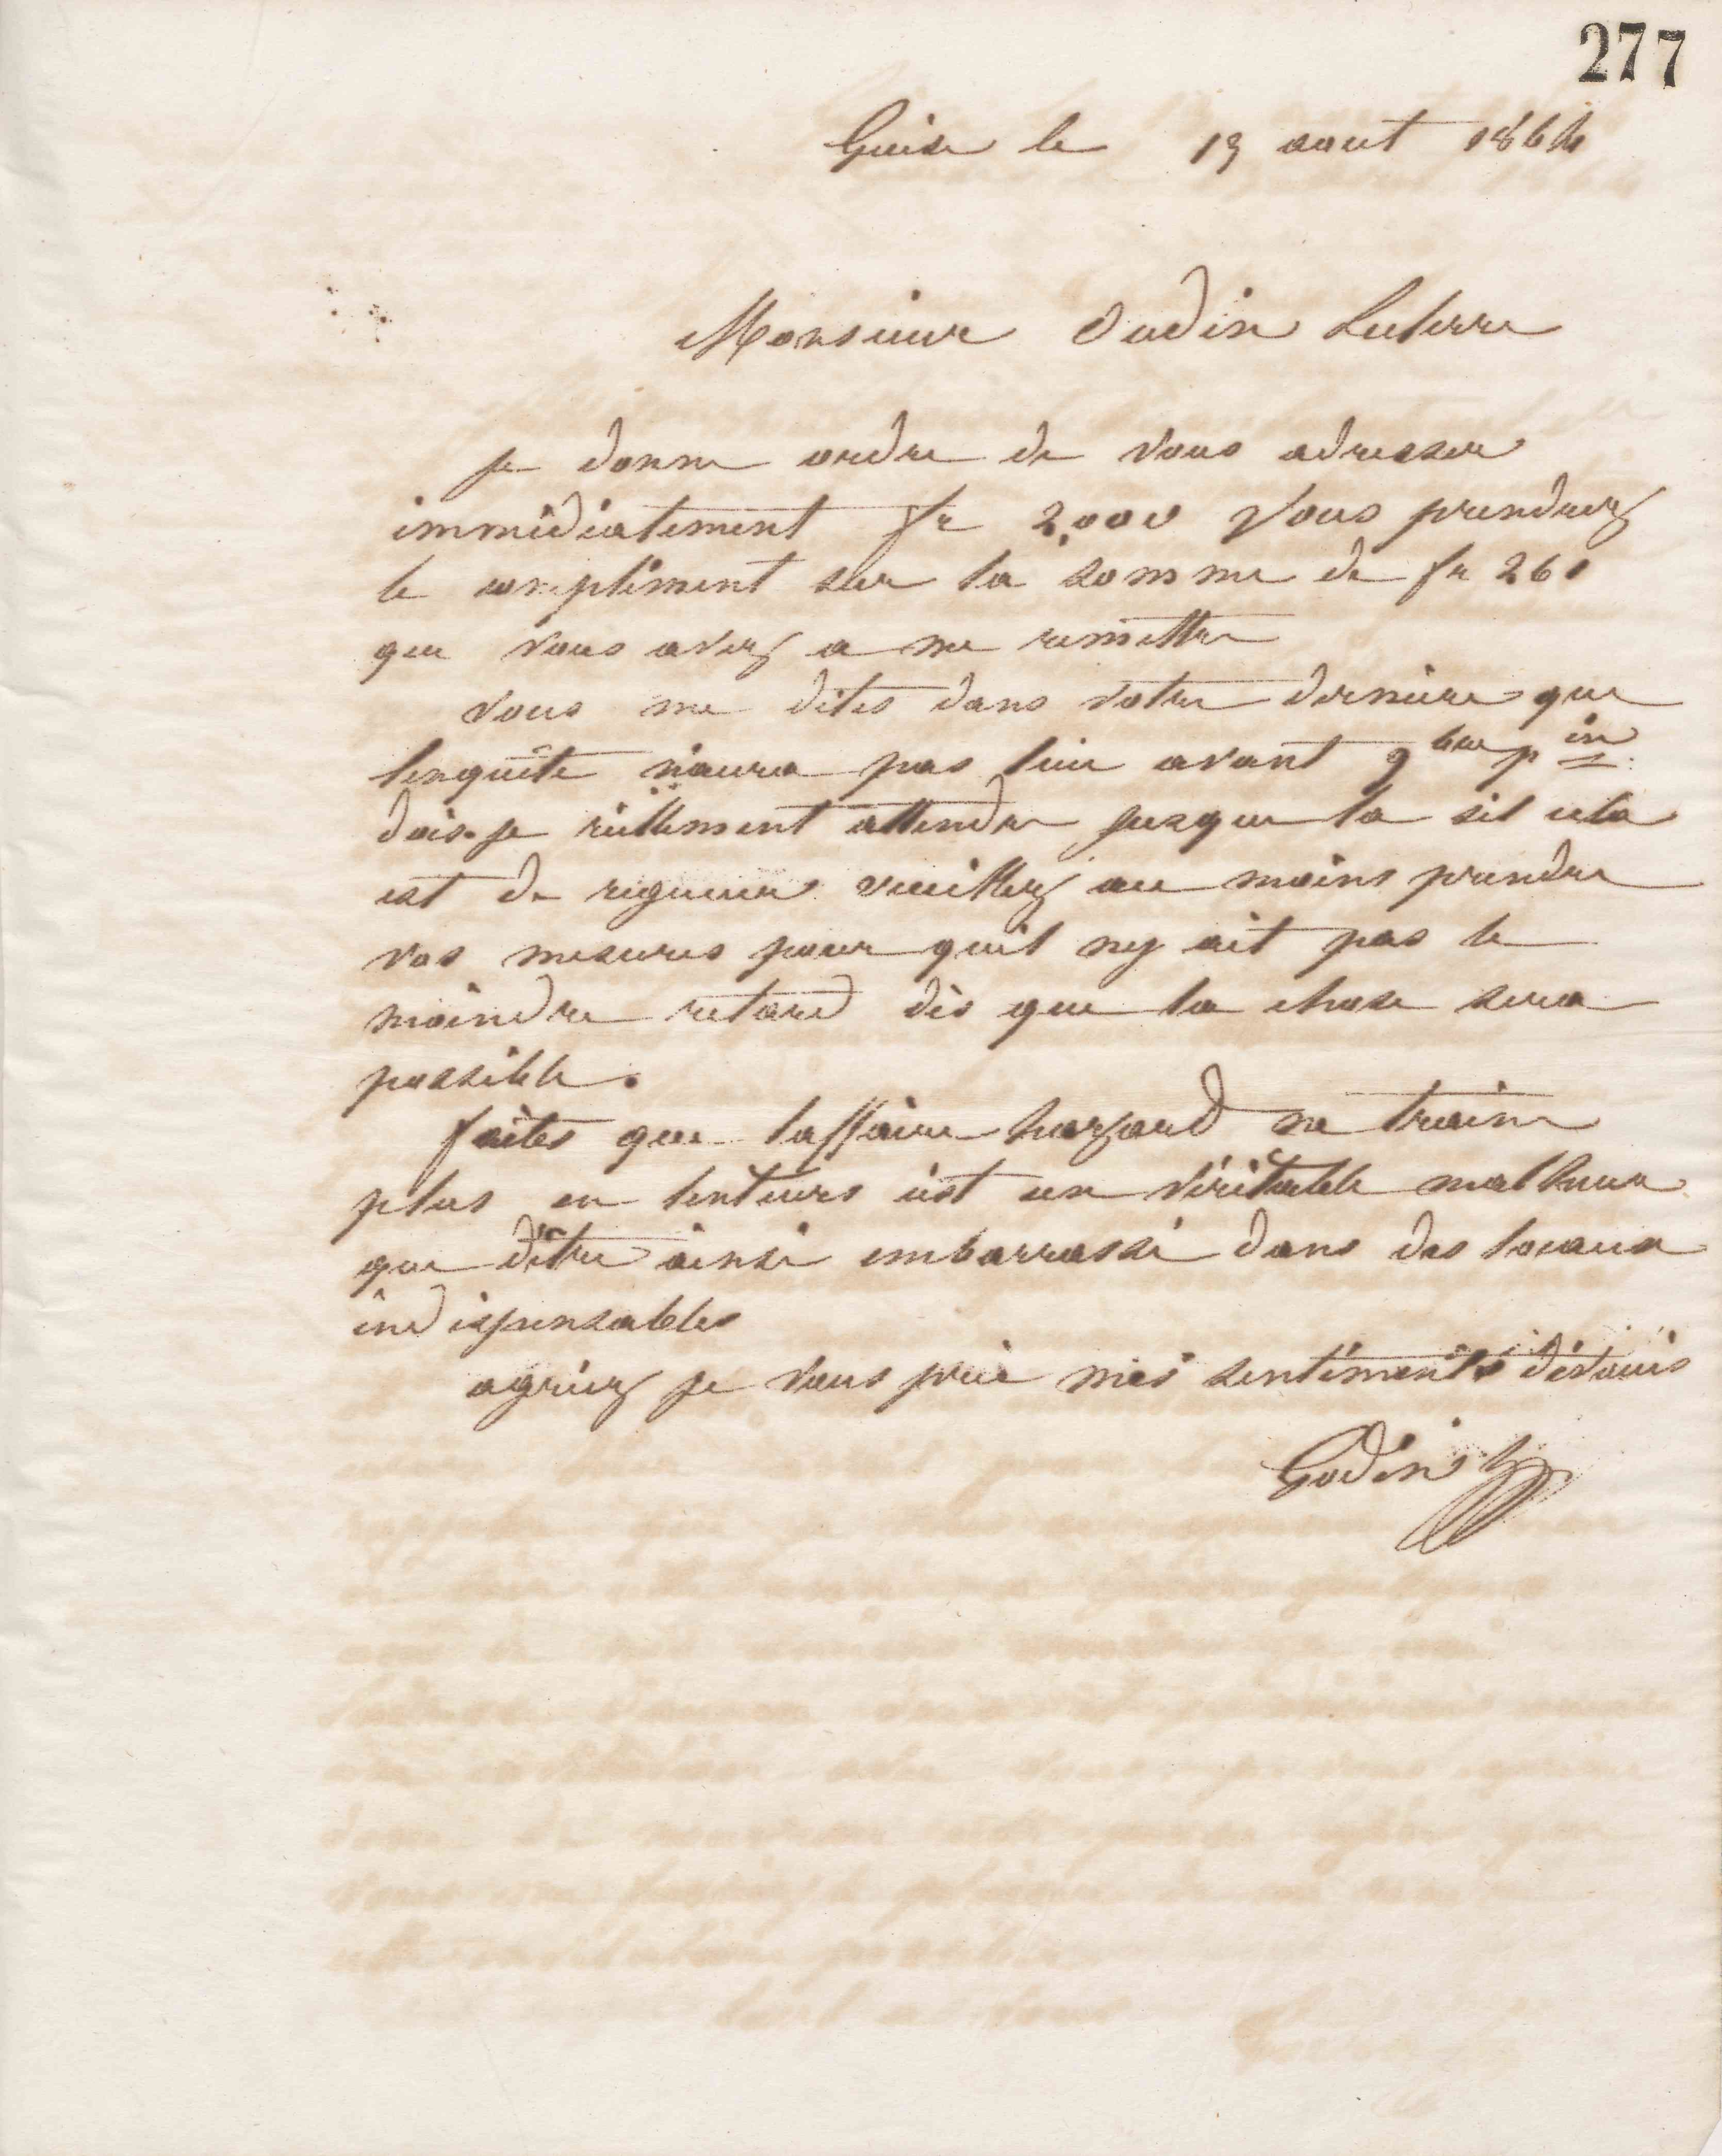 277
Guise le 19 aout 1864
Monsieur Oudin Leclerre
je donne ordre de vous adresser
immédiatement fr 2,000 Vous prendrez
le complément sur la somme de fr 261
que vous avez a me remettre
vous me dites dans votre dernière que
lenquête naura pas lieu avant 9bre pin
dois-je réellement attendre jusque la sil cela
est de rigueur veuillez au moins prendre
vos mesures pour quil ny ait pas le
moindre retard dès que la chose sera
possible.
faites que laffaire hazard ne traine
plus en lenteurs cest un véritable malheur
que dêtre ainsi embarrassé dans des locaux
indispensables
agréez je vous prie mes sentiments dévoués
Godin